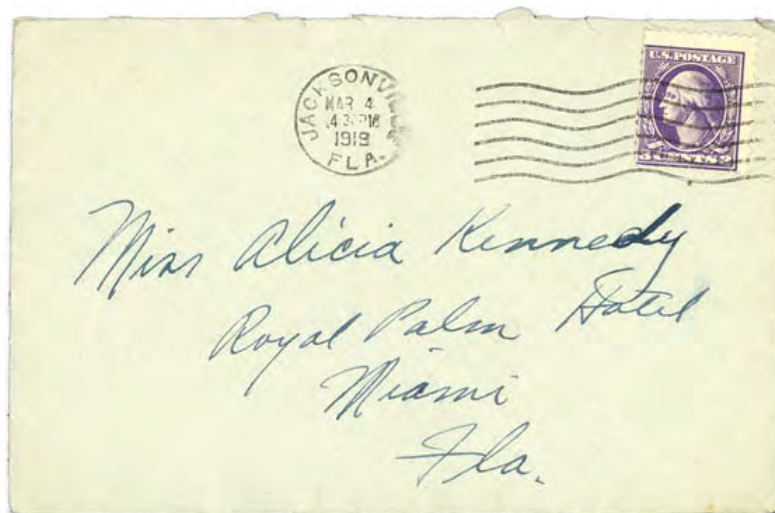 JACKSONVILLE
MAR 4
1919
FLA.
U.S. POSTAGE
3 CENTS 3
Miss Alicia Kennedy
Royal Palm Hotel
Miami
Fla.